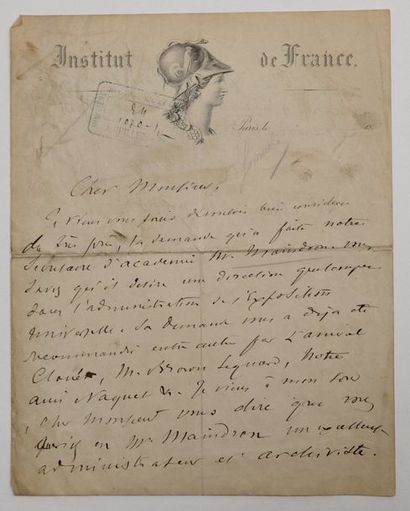 Institut de France.
Paris, le
Cher Monsieur,
Je viens vous prier de vouloir bien considérer
de très près, la demande qu'a faite notre
Secrétaire d'académie Mr. Maindron. Vous
savez qu'il désire une direction quelconque
dans l'administration de l'Exposition
Universelle. Sa demande vous a déjà été
recommandée entre autre par L'amiral
Cloué, M. Brown Sequard, Notre
ami Naquet &. Je viens à mon tour
, cher Monsieur vous dire que vous
auriez en Mr Maindron un excellent
administrateur et archiviste.